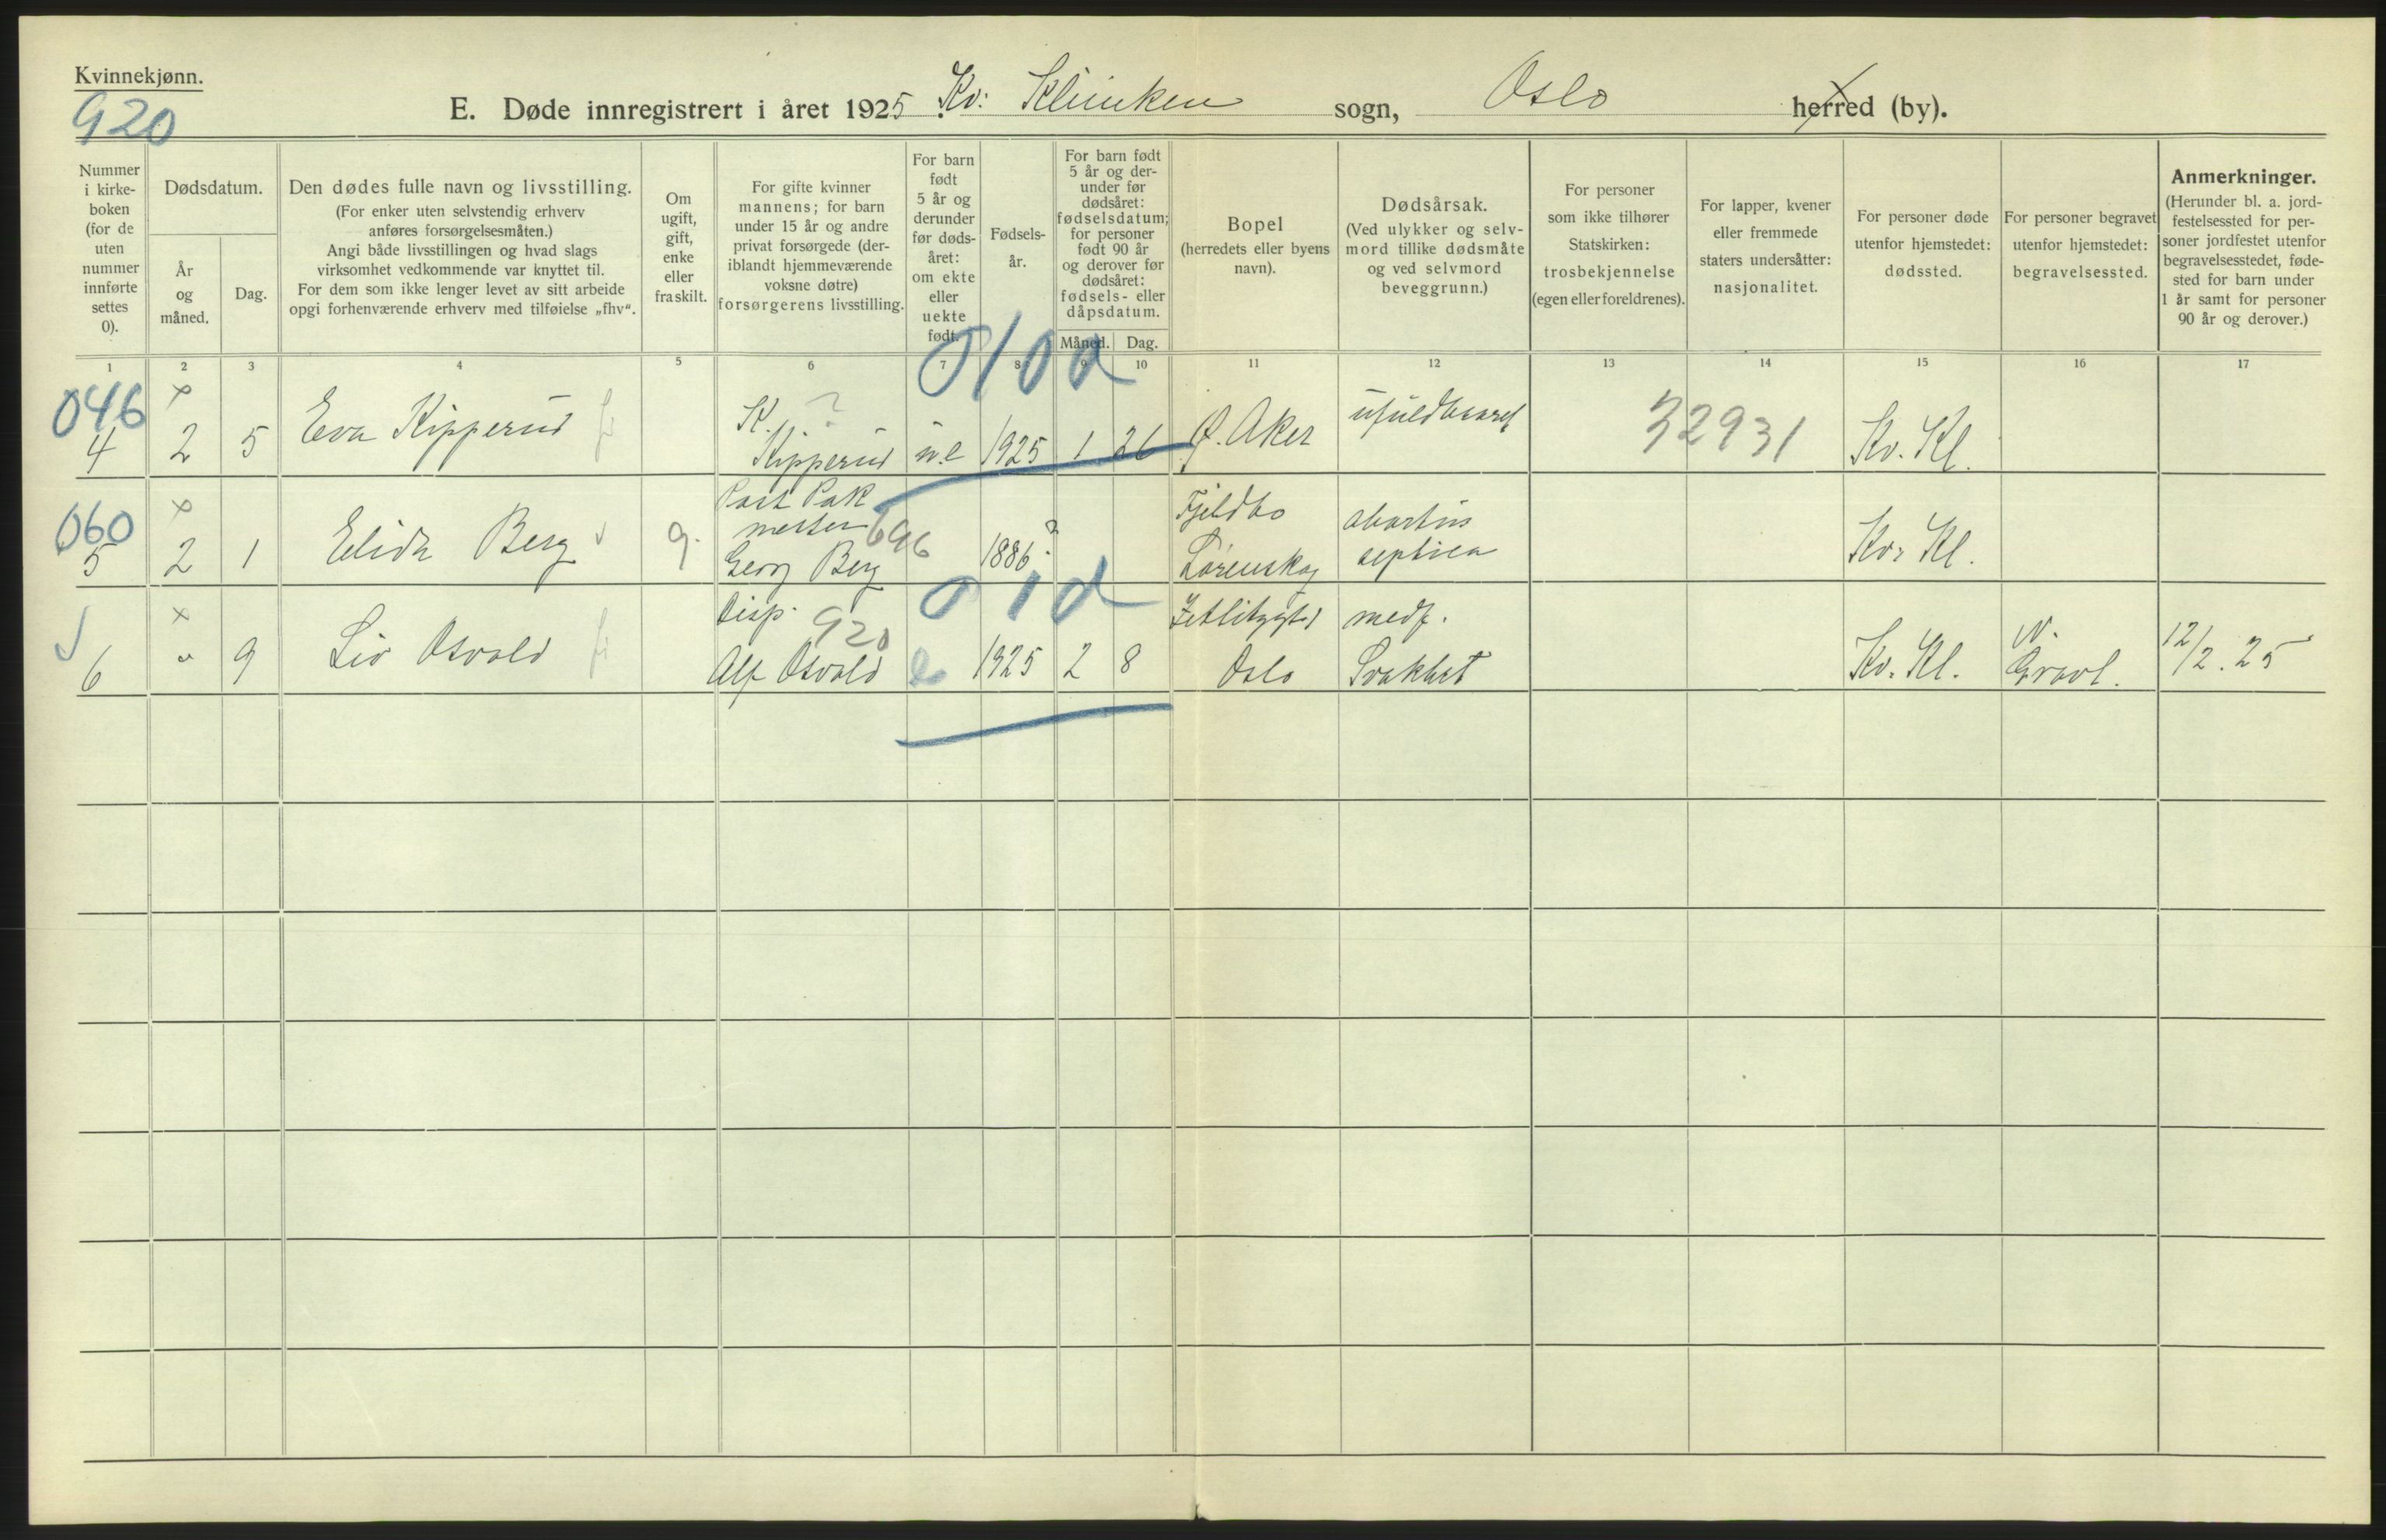 Kvinnekjønn.
920
E. Døde innregistrert i året 1925. Kv: Klinikken sogn, Oslo herred (by).
Nummer i kirke- boken (for de uten nummer innførte settes 0).
Dødsdatum.
År og måned.
Dag.
Den dødes fulle navn og livsstilling.
(For enker uten selvstendig erhverv
anføres forsørgelsesmåten.)
Angi både livsstillingen og hvad slags
virksomhet vedkommende var knyttet til.
For dem som ikke lenger levet av sitt arbeide
opgi forhenværende erhverv med tilføielse „fhv“.
Om
ugift,
gift,
enke
eller
fraskilt.
For gifte kvinner
mannens; for barn
under 15 år og andre
privat forsørgede (der-
iblandt hjemmeværende
voksne døtre)
forsørgerens livsstilling.
For barn
født
5 år og
derunder
før døds-
året:
om ekte
eller
uekte
født.
Fødsels-
år.
For barn født
5 år og der-
under før
dødsåret:
fødselsdatum;
for personer
født 90 år
og derover før
dødsåret:
fødsels- eller
dåpsdatum.
Måned. Dag.
Bopel
(herredets eller byens
navn).
Dødsårsak.
(Ved ulykker og selv-
mord tillike dødsmåte
og ved selvmord
beveggrunn.)
For personer
som ikke tilhører
Statskirken:
trosbekjennelse
(egen eller foreldrenes).
For lapper, kvener
eller fremmede
staters undersåtter:
nasjonalitet.
For personer døde
utenfor hjemstedet:
dødssted.
For personer begravet
utenfor hjemstedet:
begravelsessted.
Anmerkninger.
(Herunder bl. a. jord-
festelsessted for per-
soner jordfestet utenfor
begravelsesstedet, føde-
sted for barn under
1 år samt for personer
90 år og derover.)
1 2 3 4 5 6 7 8 9 10 11 12 13 14 15 16 17
046
010d
4 2 5 Eva Kipperud K. ? Kipperud u.e 1925 1 26 Ø. Aker ufuldbaaret 32931 Kv. Kl.
060
5 2 1 Elida Berg g. Post Pak mester 696 Georg Berg 1886 ? Fjeldbo Lørenskog abortus septica Kv. Kl.
01d
6 " 9 Liv Osvald Disp. 920 Alf Osvald e 1925 2 8 Oslo medf. Svakhet Kv. Kl. V. Gravl. 12/2. 25